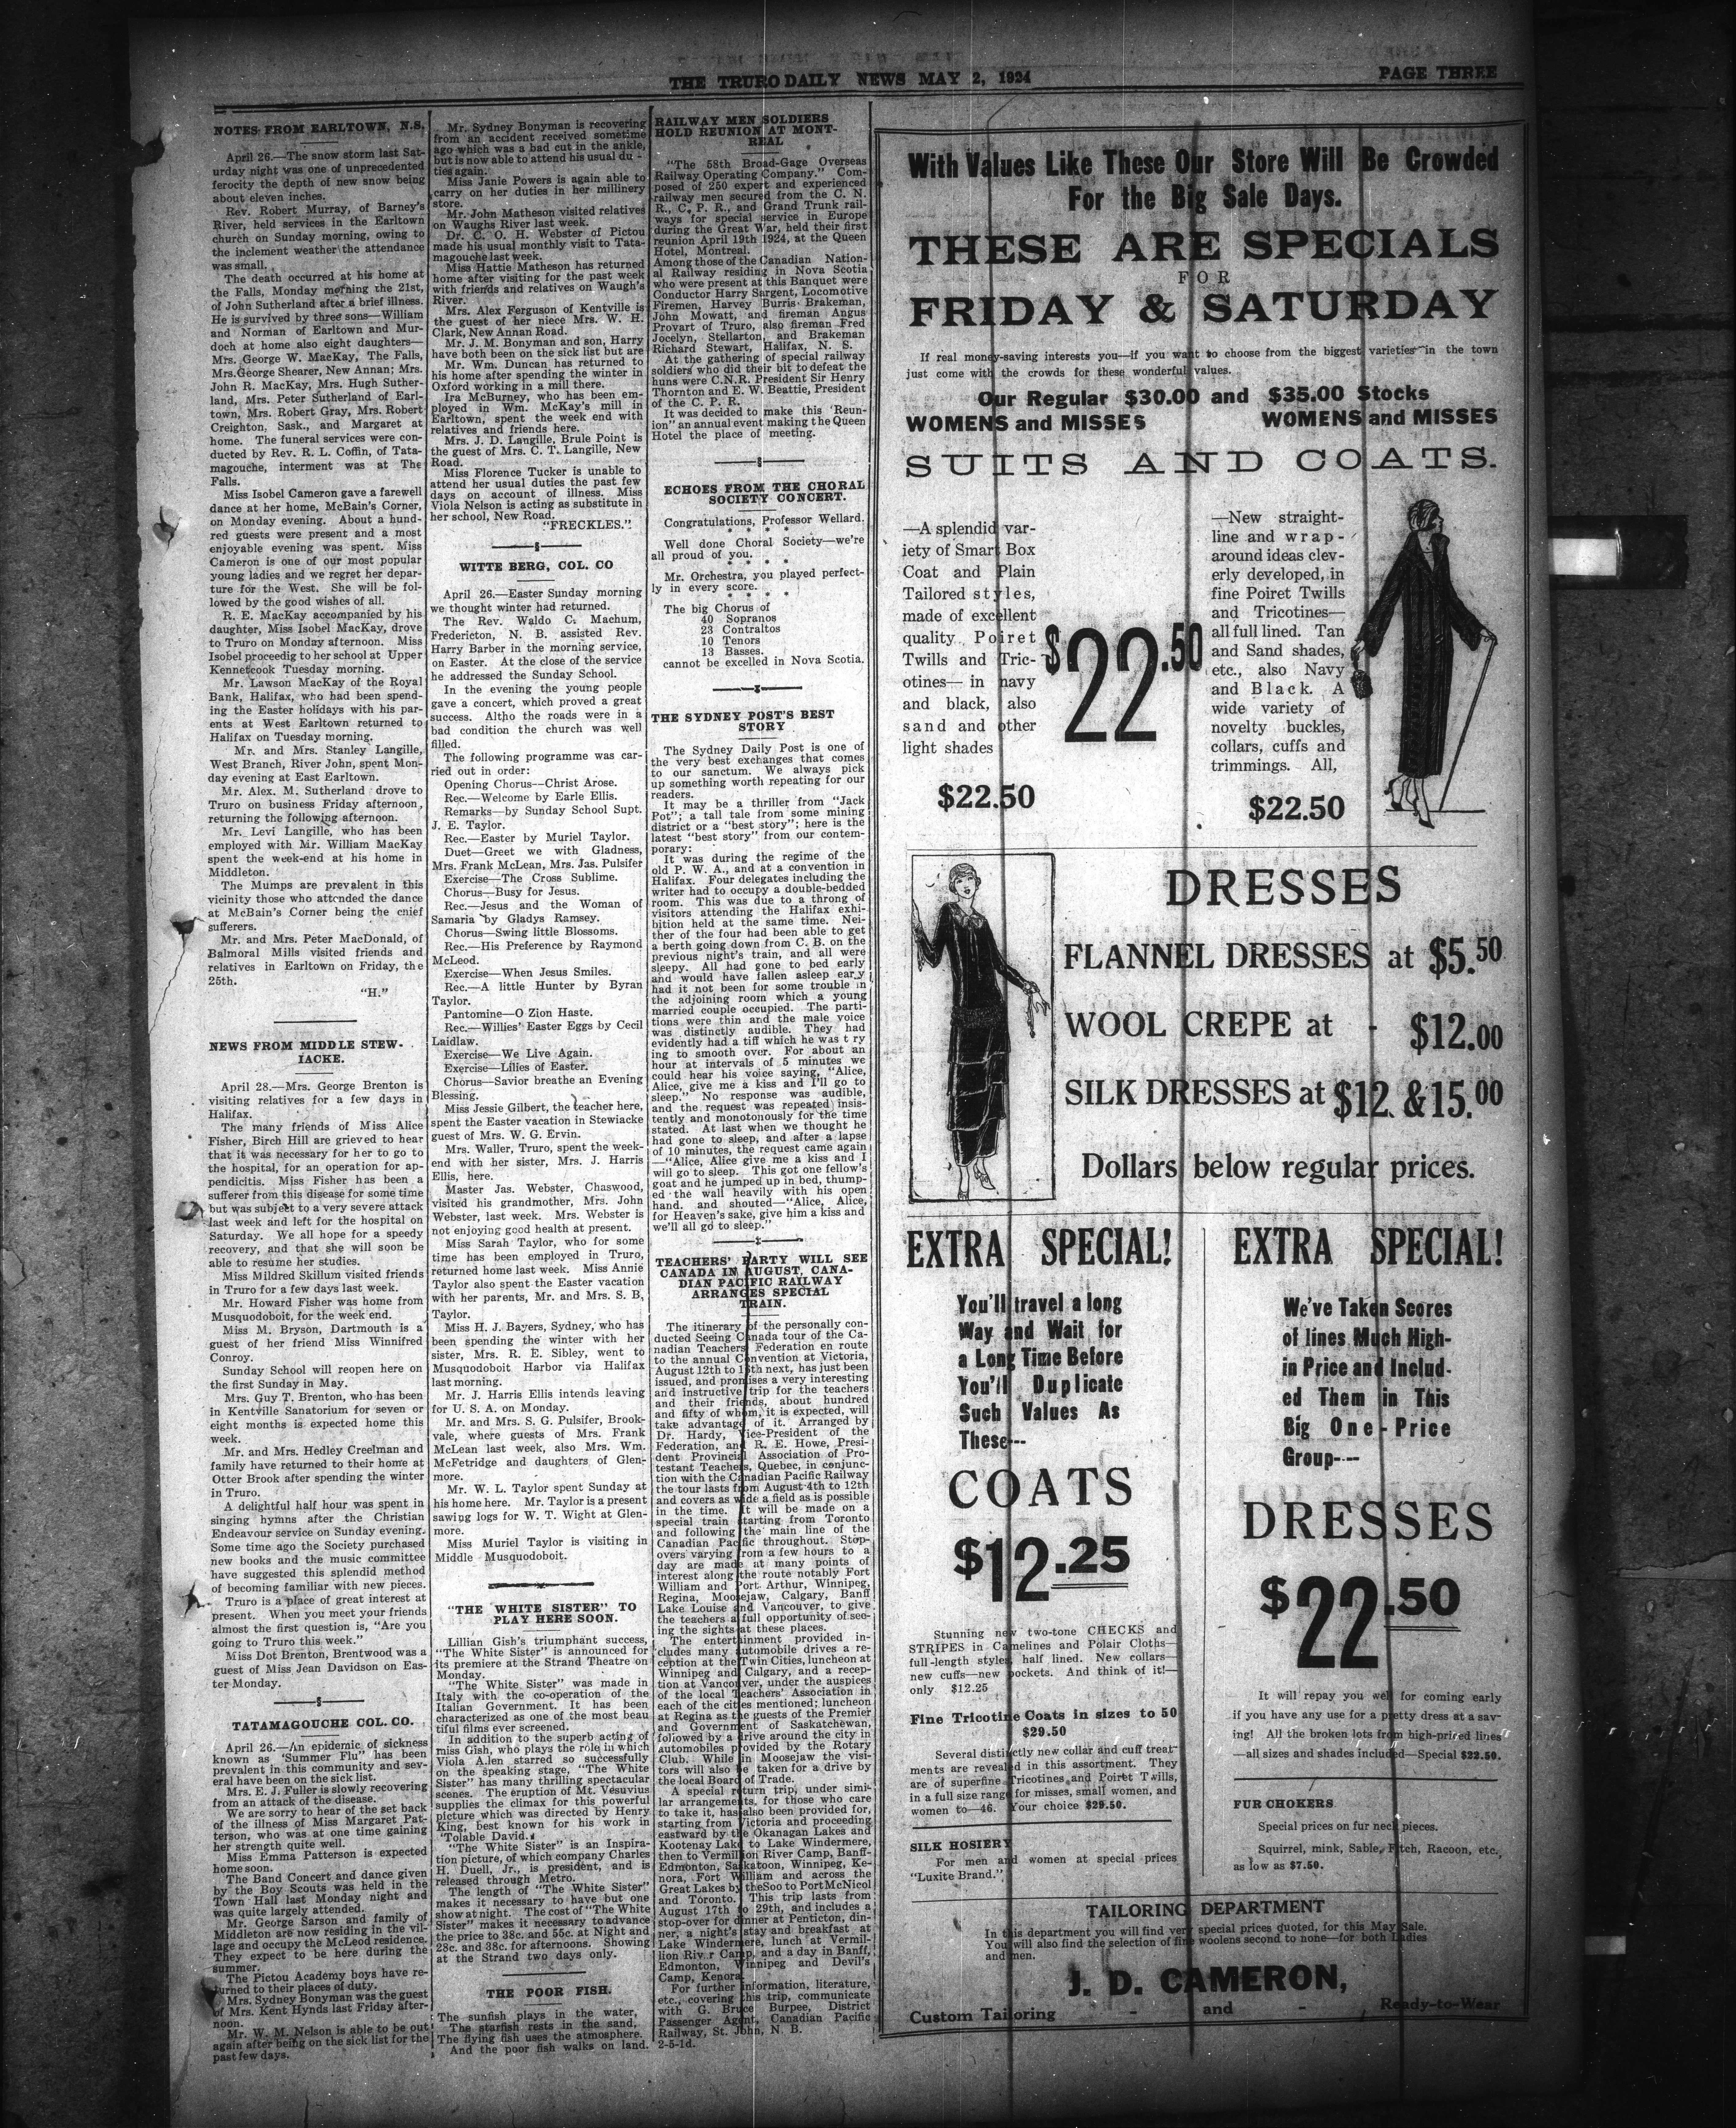 THE TRURO DAILY NEWS MAY 2, 1924
PAGE THREE
NOTES FROM EARLTOWN, N.S.
April 26.—The snow storm last Sat-
urday night was one of unprecedented
ferocity the depth of new snow being
about eleven inches.
Rev. Robert Murray, of Barney's
River, held services in the Earltown
church on Sunday morning, owing to
the inclement weather the attendance
was small.
The death occurred at his home at
the Falls, Monday morning the 21st,
of John Sutherland after a brief illness.
He is survived by three sons—William
and Norman of Earltown and Mur-
doch at home also eight daughters—
Mrs. George W. MacKay, The Falls,
Mrs.George Shearer, New Annan; Mrs.
John R. MacKay, Mrs. Hugh Suther-
land, Mrs. Peter Sutherland of Earl-
town, Mrs. Robert Gray, Mrs. Robert
Creighton, Sask., and Margaret at
home. The funeral services were con-
ducted by Rev. R. L. Coffin, of Tata-
magouche, interment was at The
Falls.
Miss Isobel Cameron gave a farewell
dance at her home, McBain's Corner,
on Monday evening. About a hund-
red guests were present and a most
enjoyable evening was spent. Miss
Cameron is one of our most popular
young ladies and we regret her depar-
ture for the West. She will be fol-
lowed by the good wishes of all.
R. E. MacKay accompanied by his
daughter, Miss Isobel MacKay, drove
to Truro on Monday afternoon. Miss
Isobel proceedig to her school at Upper
Kennetcook Tuesday morning.
Mr. Lawson MacKay of the Royal
Bank, Halifax, who had been spend-
ing the Easter holidays with his par-
ents at West Earltown returned to
Halifax on Tuesday morning.
Mr. and Mrs. Stanley Langille,
West Branch, River John, spent Mon-
day evening at East Earltown.
Mr. Alex. M. Sutherland drove to
Truro on business Friday afternoon,
returning the following afternoon.
Mr. Levi Langille, who has been
employed with Mr. William MacKay
spent the week-end at his home in
Middleton.
The Mumps are prevalent in this
vicinity those who attended the dance
at McBain's Corner being the chief
sufferers.
Mr. and Mrs. Peter MacDonald, of
Balmoral Mills visited friends and
relatives in Earltown on Friday, the
25th.
"H."
NEWS FROM MIDDLE STEW-
IACKE.
April 28.—Mrs. George Brenton is
visiting relatives for a few days in
Halifax.
The many friends of Miss Alice
Fisher, Birch Hill are grieved to hear
that it was necessary for her to go to
the hospital, for an operation for ap-
pendicitis. Miss Fisher has been a
sufferer from this disease for some time
but was subject to a very severe attack
last week and left for the hospital on
Saturday. We all hope for a speedy
recovery, and that she will soon be
able to resume her studies.
Miss Mildred Skillum visited friends
in Truro for a few days last week.
Mr. Howard Fisher was home from
Musquodoboit, for the week end.
Miss M. Bryson, Dartmouth is a
guest of her friend Miss Winnifred
Conroy.
Sunday School will reopen here on
the first Sunday in May.
Mrs. Guy T. Brenton, who has been
in Kentville Sanatorium for seven or
eight months is expected home this
week.
Mr. and Mrs. Hedley Creelman and
family have returned to their home at
Otter Brook after spending the winter
in Truro.
A delightful half hour was spent in
singing hymns after the Christian
Endeavour service on Sunday evening.
Some time ago the Society purchased
new books and the music committee
have suggested this splendid method
of becoming familiar with new pieces.
Truro is a place of great interest at
present. When you meet your friends
almost the first question is, "Are you
going to Truro this week."
Miss Dot Brenton, Brentwood was a
guest of Miss Jean Davidson on Eas-
ter Monday.
TATAMAGOUCHE COL. CO.
April 26.—An epidemic of sickness
known as 'Summer Flu" has been
prevalent in this community and sev-
eral have been on the sick list.
Mrs. E. J. Fuller is slowly recovering
from an attack of the disease.
We are sorry to hear of the set back
of the illness of Miss Margaret Pat-
terson, who was at one time gaining
her strength quite well.
Miss Emma Patterson is expected
home soon.
The Band Concert and dance given
by the Boy Scouts was held in the
Town Hall last Monday night and
was quite largely attended.
Mr. George Sarson and family of
Middleton are now residing in the vil-
lage and occupy the McLeod residence.
They expect to be here during the
summer.
The Pictou Academy boys have re-
turned to their places of duty.
Mrs. Sydney Bonyman was the guest
of Mrs. Kent Hynds last Friday after-
noon.
Mr. W. M. Nelson is able to be out
again after being on the sick list for the
past few days.
Mr. Sydney Bonyman is recovering
from an accident received sometime
ago which was a bad cut in the ankle,
but is now able to attend his usual du-
ties again.
Miss Janie Powers is again able to
carry on her duties in her millinery
store.
Mr. John Matheson visited relatives
on Waughs River last week.
Dr. C. O. H. Webster of Pictou
made his usual monthly visit to Tata-
magouche last week.
Miss Hattie Matheson has returned
home after visiting for the past week
with friends and relatives on Waugh's
River.
Mrs. Alex Ferguson of Kentville is
the guest of her niece Mrs. W. H.
Clark, New Annan Road.
Mr. J. M. Bonyman and son, Harry
have both been on the sick list but are
Mr. Wm. Duncan has returned to
his home after spending the winter in
Oxford working in a mill there.
Ira McBurney, who has been em-
ployed in Wm. McKay's mill in
Earltown, spent the week end with
relatives and friends here.
Mrs. J. D. Langille, Brule Point is
the guest of Mrs. C. T. Langille, New
Road.
Miss Florence Tucker is unable to
attend her usual duties the past few
days on account of illness. Miss
Viola Nelson is acting as substitute in
her school, New Road.
"FRECKLES."
WITTE BERG, COL. CO
April 26.—Easter Sunday morning
we thought winter had returned.
The Rev. Waldo C. Machum,
Fredericton, N. B. assisted Rev.
Harry Barber in the morning service,
on Easter. At the close of the service
he addressed the Sunday School.
In the evening the young people
gave a concert, which proved a great
success. Altho the roads were in a
bad condition the church was well
filled.
The following programme was car-
ried out in order:
Opening Chorus—Christ Arose.
Rec.—Welcome by Earle Ellis.
Remarks—by Sunday School Supt.
J. E. Taylor.
Rec.—Easter by Muriel Taylor.
Duet—Greet we with Gladness,
Mrs. Frank McLean, Mrs. Jas. Pulsifer
Exercise—The Cross Sublime.
Chorus—Busy for Jesus.
Rec.—Jesus and the Woman of
Samaria by Gladys Ramsey.
Chorus—Swing little Blossoms.
Rec.—His Preference by Raymond
McLeod.
Exercise—When Jesus Smiles.
Rec.—A little Hunter by Byran
Taylor.
Pantomine—O Zion Haste.
Rec.—Willies' Easter Eggs by Cecil
Laidlaw.
Exercise—We Live Again.
Exercise—Lilies of Easter.
Chorus—Savior breathe an Evening
Blessing.
Miss Jessie Gilbert, the teacher here,
spent the Easter vacation in Stewiacke
guest of Mrs. W. G. Ervin.
Mrs. Waller, Truro, spent the week-
end with her sister, Mrs. J. Harris
Ellis, here.
Master Jas. Webster, Chaswood,
visited his grandmother, Mrs. John
Webster, last week. Mrs. Webster is
not enjoying good health at present.
Miss Sarah Taylor, who for some
time has been employed in Truro,
returned home last week. Miss Annie
Taylor also spent the Easter vacation
with her parents, Mr. and Mrs. S. B,
Taylor.
Miss H. J. Bayers, Sydney, who has
been spending the winter with her
sister, Mrs. R. E. Sibley, went to
Musquodoboit Harbor via Halifax
last morning.
Mr. J. Harris Ellis intends leaving
for U. S. A. on Monday.
Mr. and Mrs. S. G. Pulsifer, Brook-
vale, where guests of Mrs. Frank
McLean last week, also Mrs. Wm.
McFetridge and daughters of Glen-
more.
Mr. W. L. Taylor spent Sunday at
his home here. Mr. Taylor is a present
sawing logs for W. T. Wight at Glen-
more.
Miss Muriel Taylor is visiting in
Middle Musquodoboit.
"THE WHITE SISTER" TO
PLAY HERE SOON.
Lillian Gish's triumphant success,
"The White Sister" is announced for
its premiere at the Strand Theatre on
Monday.
"The White Sister" was made in
Italy with the co-operation of the
Italian Government. It has been
characterized as one of the most beau
tiful films ever screened.
In addition to the superb acting of
miss Gish, who plays the role in which
Viola Allen starred so successfully
on the speaking stage, "The White
Sister" has many thrilling spectacular
scenes. The eruption of Mt. Vesuvius
supplies the climax for this powerful
picture which was directed by Henry
King, best known for his work in
'Tolable David.
"The White Sister" is an Inspira-
tion picture, of which company Charles
H. Duell, Jr., is president, and is
released through Metro.
The length of "The White Sister"
makes it necessary to have but one
show at night. The cost of "The White
Sister" makes it necessary to advance
the price to 38c. and 55c. at Night and
28c. and 38c. for afternoons. Showing
at the Strand two days only.
THE POOR FISH.
The sunfish plays in the water,
The starfish rests in the sand,
The flying fish uses the atmosphere.
And the poor fish walks on land.
RAILWAY MEN SOLDIERS
HOLD REUNION AT MONT-
REAL
"The 58th Broad-Gage Overseas
Railway Operating Company." Com-
posed of 250 expert and experienced
railway men secured from the C. N.
R., C. P. R., and Grand Trunk rail-
ways for special service in Europe
during the Great War, held their first
reunion April 19th 1924, at the Queen
Hotel, Montreal.
Among those of the Canadian Nation-
al Railway residing in Nova Scotia
who were present at this Banquet were
Conductor Harry Sargent, Locomotive
Firemen, Harvey Burris Brakeman,
John Mowatt, and fireman Angus
Provart of Truro, also fireman Fred
Jocelyn, Stellarton, and Brakeman
Richard Stewart, Halifax, N. S.
At the gathering of special railway
soldiers who did their bit to defeat the
huns were C.N.R. President Sir Henry
Thornton and E. W. Beattie, President
of the C. P. R.
It was decided to make this 'Reun-
ion" an annual event making the Queen
Hotel the place of meeting.
ECHOES FROM THE CHORAL
SOCIETY CONCERT.
Congratulations, Professor Wellard.
* * * *
Well done Choral Society—we're
all proud of you.
* * * *
Mr. Orchestra, you played perfect-
ly in every score.
* * * *
The big Chorus of
40 Sopranos
23 Contraltos
10 Tenors
13 Basses.
cannot be excelled in Nova Scotia.
THE SYDNEY POST'S BEST
STORY
The Sydney Daily Post is one of
the very best exchanges that comes
to our sanctum. We always pick
up something worth repeating for our
readers.
It may be a thriller from "Jack
Pot"; a tall tale from some mining
district or a "best story"; here is the
latest "best story" from our contem-
porary:
It was during the regime of the
old P. W. A., and at a convention in
Halifax. Four delegates including the
writer had to occupy a double-bedded
room. This was due to a throng of
visitors attending the Halifax exhi-
bition held at the same time. Nei-
ther of the four had been able to get
a berth going down from C. B. on the
previous night's train, and all were
sleepy. All had gone to bed early
and would have fallen asleep early
had it not been for some trouble in
the adjoining room which a young
married couple occupied. The parti-
tions were thin and the male voice
was distinctly audible. They had
evidently had a tiff which he was t ry
ing to smooth over. For about an
hour at intervals of 5 minutes we
could hear his voice saying, "Alice,
Alice, give me a kiss and I'll go to
sleep." No response was audible,
and the request was repeated insis-
tently and monotonously for the time
stated. At last when we thought he
had gone to sleep, and after a lapse
of 10 minutes, the request came again
—"Alice, Alice give me a kiss and I
will go to sleep. This got one fellow's
goat and he jumped up in bed, thump-
ed the wall heavily with his open
hand. and shouted—"Alice, Alice,
for Heaven's sake, give him a kiss and
we'll all go to sleep."
TEACHERS' PARTY WILL SEE
CANADA IN AUGUST, CANA-
DIAN PACIFIC RAILWAY
ARRANGES SPECIAL
TRAIN.
The itinerary of the personally con-
ducted Seeing Canada tour of the Ca-
nadian Teachers Federation en route
to the annual Convention at Victoria,
August 12th to 15th next, has just been
issued, and promises a very interesting
and instructive trip for the teachers
and their friends, about hundred
and fifty of whom, it is expected, will
take advantage of it. Arranged by
Dr. Hardy, Vice-President of the
Federation, and R. E. Howe, Presi-
dent Provincial Association of Pro-
testant Teachers, Quebec, in conjunc-
tion with the Canadian Pacific Railway
the tour lasts from August 4th to 12th
and covers as wide a field as is possible
in the time. It will be made on a
special train starting from Toronto
and following the main line of the
Canadian Pacific throughout. Stop-
overs varying from a few hours to a
day are made at many points of
interest along the route notably Fort
William and Port Arthur, Winnipeg,
Regina, Moosejaw, Calgary, Banff
Lake Louise and Vancouver, to give
the teachers a full opportunity of see-
ing the sights at these places.
The entertainment provided in-
cludes many automobile drives a re-
ception at the Twin Cities, luncheon at
Winnipeg and Calgary, and a recep-
tion at Vancouver, under the auspices
of the local Teachers' Association in
each of the cities mentioned; luncheon
at Regina as the guests of the Premier
and Government of Saskatchewan,
followed by a drive around the city in
automobiles provided by the Rotary
Club. While in Moosejaw the visi-
tors will also be taken for a drive by
the local Board of Trade.
A special return trip, under simi-
lar arrangements, for those who care
to take it, has also been provided for,
starting from Victoria and proceeding
eastward by the Okanagan Lakes and
Kootenay Lake to Lake Windermere,
then to Vermilion River Camp, Banff-
Edmonton, Saskatoon, Winnipeg, Ke-
nora, Fort William and across the
Great Lakes by theSoo to PortMcNicol
and Toronto. This trip lasts from
August 17th to 29th, and includes a
stop-over for dinner at Penticton, din-
ner, a night's stay and breakfast at
Lake Windermere, lunch at Vermil-
lion River Camp, and a day in Banff,
Edmonton, Winnipeg and Devil's
Camp, Kenora.
For further information, literature,
etc., covering this trip, communicate
with G. Bruce Burpee, District
Passenger Agent, Canadian Pacific
Railway, St. John, N. B.
2-5-1d.
With Values Like These Our Store Will Be Crowded
For the Big Sale Days.
THESE ARE SPECIALS
FOR
FRIDAY & SATURDAY
If real money-saving interests you—if you want to choose from the biggest varieties in the town
just come with the crowds for these wonderful values.
Our Regular $30.00 and $35.00 Stocks
WOMENS and MISSES WOMENS and MISSES
SUITS AND COATS.
—A splendid var-
iety of Smart Box
Coat and Plain
Tailored styles,
made of excellent
quality Poiret
Twills and Tric-
otines— in navy
and black, also
sand and other
light shades
$22.50
$22.50
—New straight-
line and wrap-
around ideas clev-
erly developed, in
fine Poiret Twills
and Tricotines—
all full lined. Tan
and Sand shades,
etc., also Navy
and Black. A
wide variety of
novelty buckles,
collars, cuffs and
trimmings. All,
$22.50
DRESSES
FLANNEL DRESSES at $5.50
WOOL CREPE at - $12.00
SILK DRESSES at $12. & 15.00
Dollars below regular prices.
EXTRA SPECIAL!
You'll travel a long
Way and Wait for
a Long Time Before
You'll Duplicate
Such Values As
These---
COATS
$12.25
Stunning new two-tone CHECKS and
STRIPES in Camelines and Polair Cloths—
full-length styles, half lined. New collars—
new cuffs—new pockets. And think of it!—
only $12.25
Fine Tricotine Coats in sizes to 50
$29.50
Several distinctly new collar and cuff treat-
ments are revealed in this assortment. They
are of superfine Tricotines and Poiret Twills,
in a full size range for misses, small women, and
women to—46. Your choice $29.50.
SILK HOSIERY
For men and women at special prices
"Luxite Brand."
EXTRA SPECIAL!
We've Taken Scores
of lines Much High-
in Price and Includ-
ed Them in This
Big One-Price
Group---
DRESSES
$22.50
It will repay you well for coming early
if you have any use for a pretty dress at a sav-
ing! All the broken lots from high-priced lines
—all sizes and shades included—Special $22.50.
FUR CHOKERS
Special prices on fur neck pieces.
Squirrel, mink, Sable, Fitch, Racoon, etc.,
as low as $7.50.
TAILORING DEPARTMENT
In this department you will find very special prices quoted, for this May Sale.
You will also find the selection of fine woolens second to none—for both Ladies
and men.
J. D. CAMERON,
Custom Tailoring - and - Ready-to-Wear